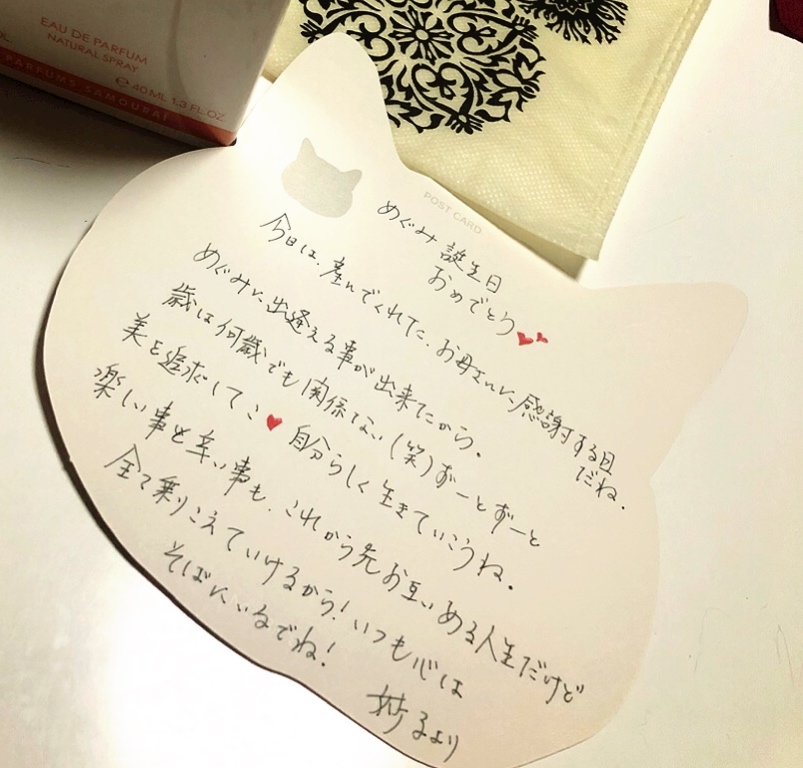 EAU DE PARFUM
NATURAL SPRAY
℮ 40 ML 1.3 FL.OZ.
PARFUMS SAMOURAÏ
POST CARD
めぐみ 誕生日
おめでとう
今日は、産んでくれた、お母さんに、感謝する日
だね。
めぐみに、出逢える事が出来たから。
歳は何歳でも関係ない(笑)ずーとずーと
美を追求してこ 自分らしく生きていこうね。
楽しい事も辛い事も、これから先お互いある人生だけど
全て乗りこえていけるから!いつも心は
そばにいるでね!
妙るより